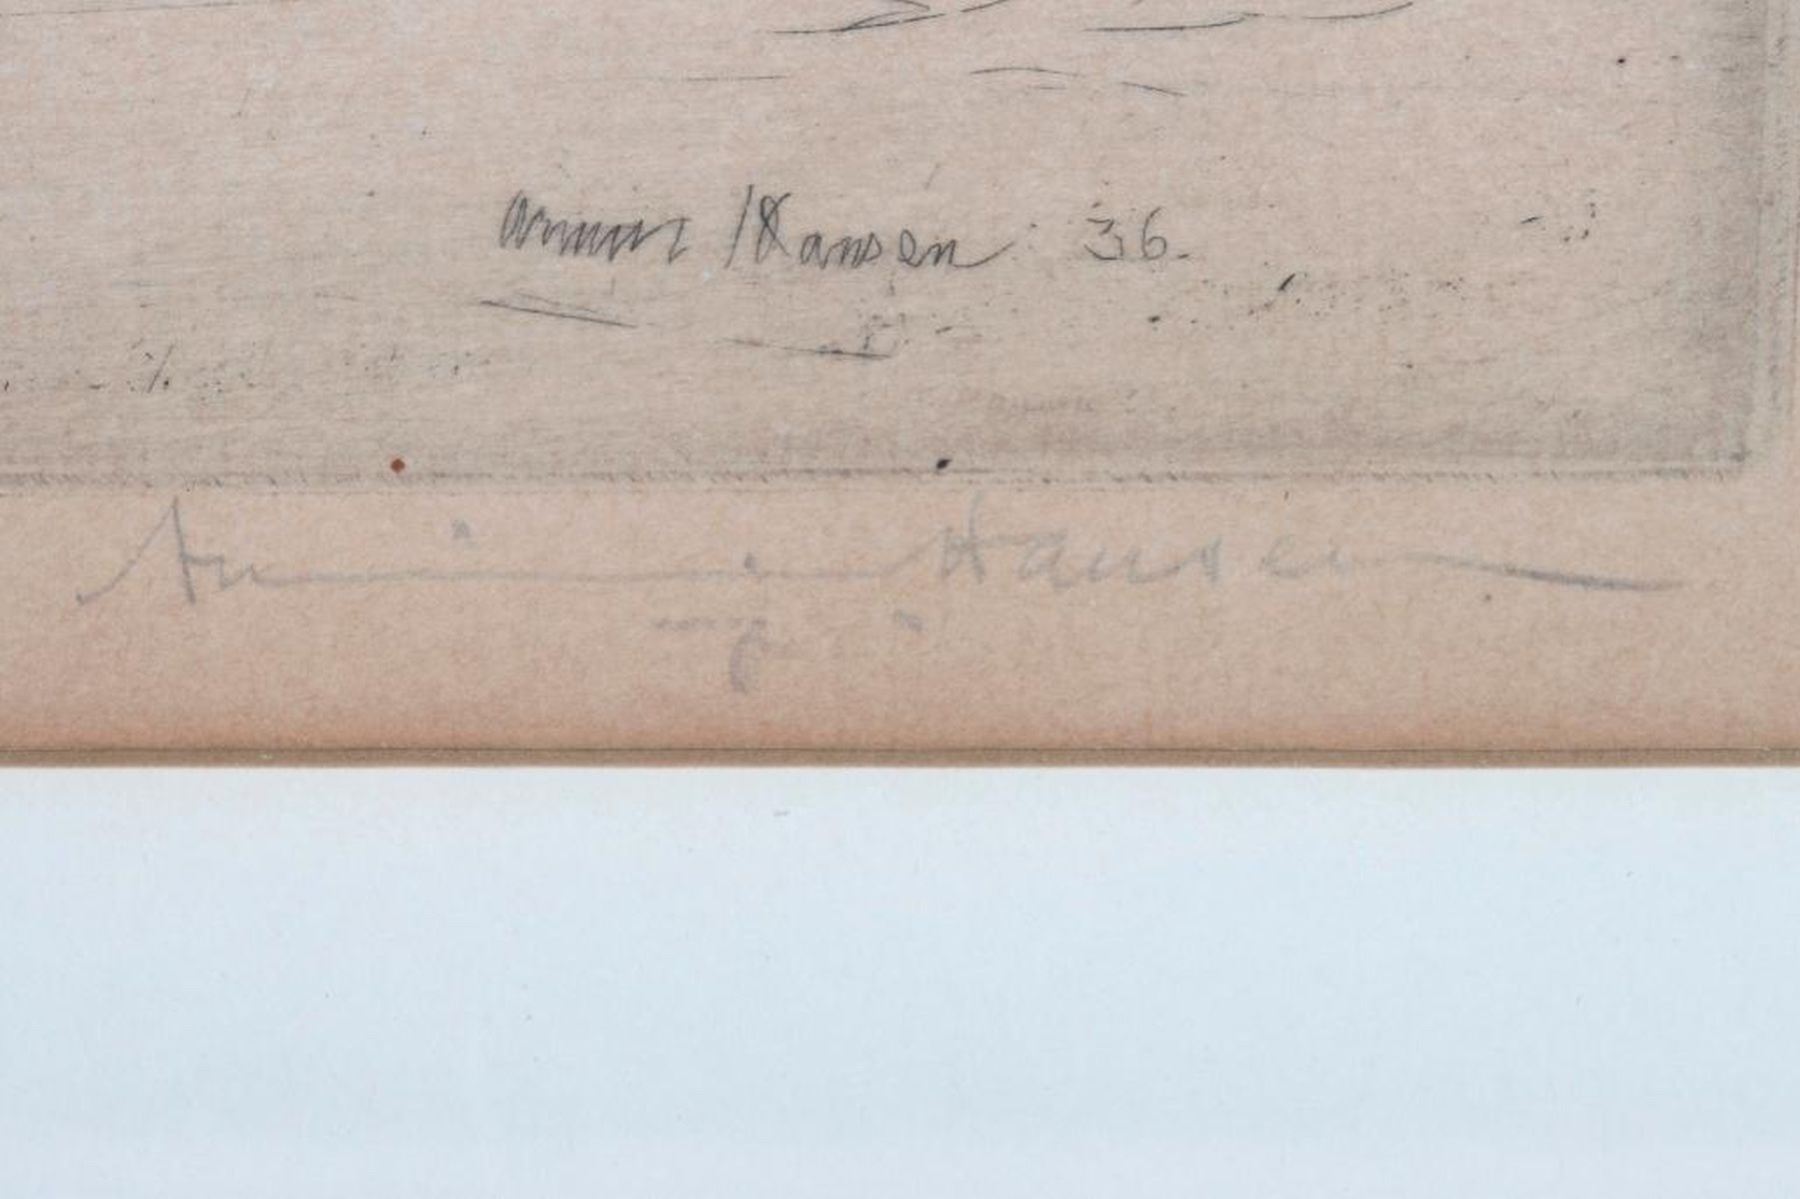 Armin Hansen 36.
Armin Hansen